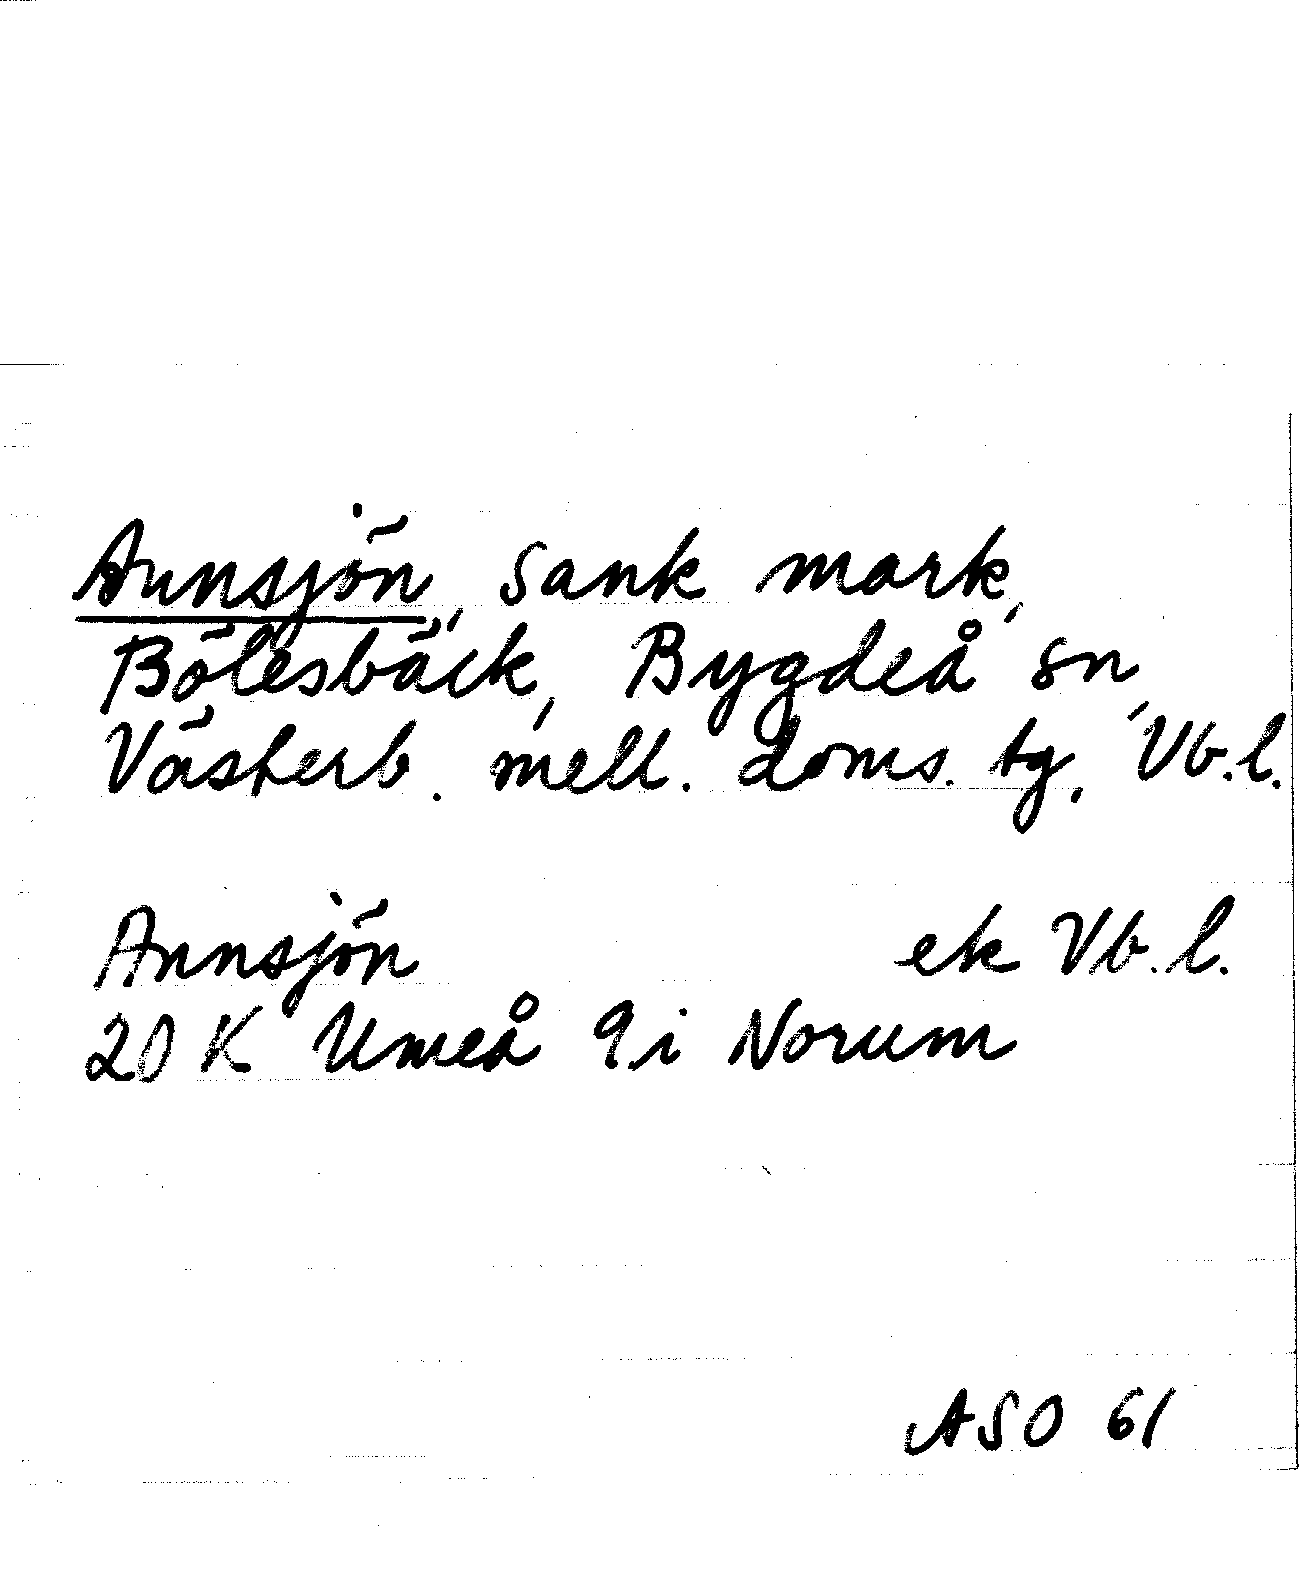 Annsjön, Sank mark,
Bölesbäck, Bygdeå sn,
Västerb. mell. doms. tg. Vb.l.
Annsjön ek Vb.l.
20 K Umeå 9i Norum
ASO 61